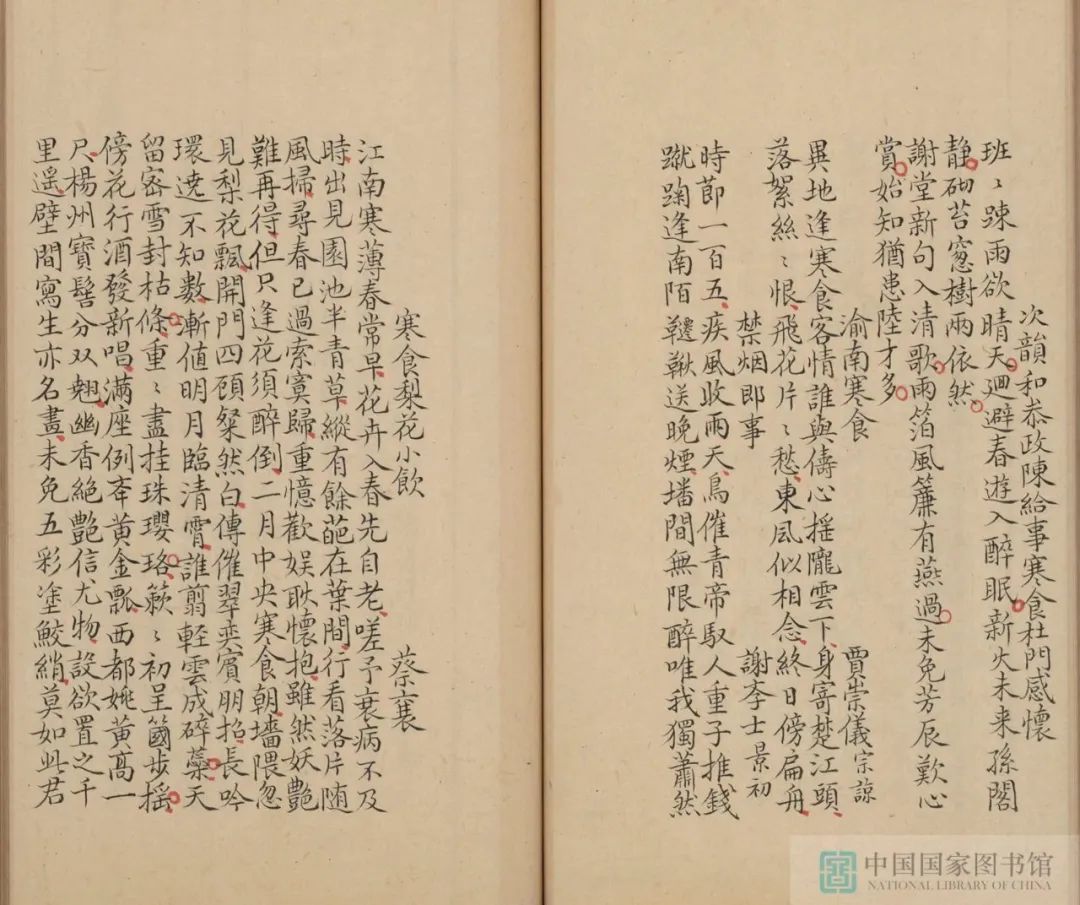 次韻和恭政陳給事寒食杜門感懷
班〻踈雨欲晴天廻避春遊入醉眠新火未来孫閣
静砌苔窓樹雨依然
謝堂新句入清歌雨箔風簾有燕過未免芳辰歎心
賞始知猶患陸才多
渝南寒食 賈崇儀宗諒
異地逢寒食客情誰與儔心揺隴雲下身寄楚江頭
落絮絲〻恨飛花片〻愁東風似相念終日傍扁舟
禁烟即事 謝李士景初
時節一百五疾風收雨天鳥催青帝馭人重子推錢
蹴踘逢南陌鞬鞦送晚煙墦間無限醉唯我獨蕭然
寒食梨花小飲 蔡襄
江南寒薄春常早花卉入春先自老嗟予衰病不及
時出見園池半青草縱有餘葩在葉間行看落片随
風掃尋春已過索寞歸重憶歡娱耿懷抱雖然妖艷
難再得但只逢花須醉倒二月中央寒食朝墻隈忽
見梨花飄開門四顧粲然白傳催翠奕賓朋招長吟
環遶不知數漸値明月臨清霄誰翦軽雲成碎蘂天
留密雪封枯條重〻盡挂珠瓔珞簌〻初呈箇步揺
傍花行酒發新唱滿座例奉黄金瓢西都姚黄髙一
尺楊州寶髻分双翹幽香絶艷信尤物設欲置之千
里遥壁間寫生亦名畫未免五彩塗鮫綃莫如此君
中国国家图书馆
NATIONAL LIBRARY OF CHINA